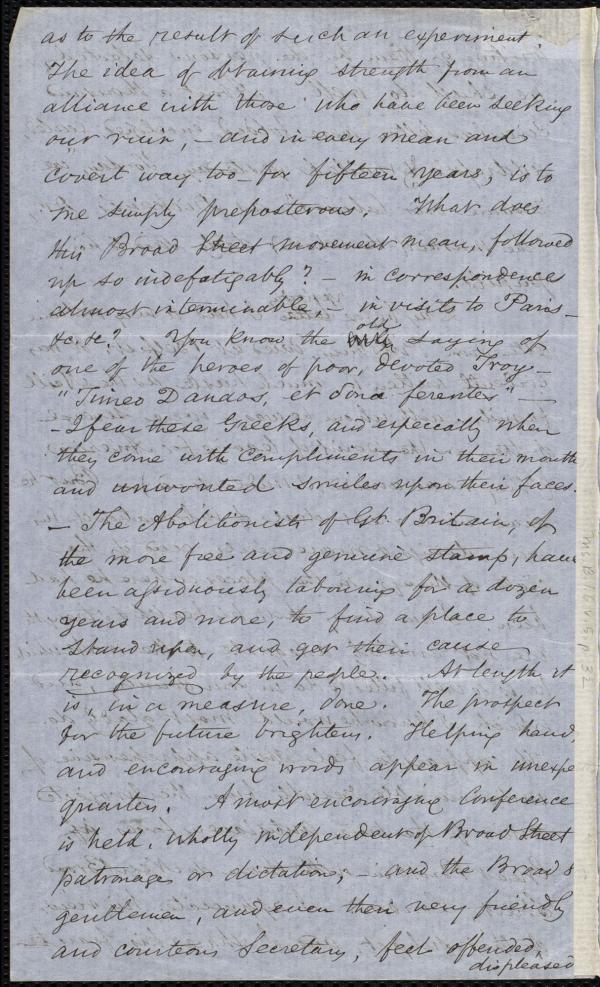 as to the result of such an experiment.
The idea of obtaining strength from an
alliance with those who have been seeking
our ruin, – and in every mean and
covert way too – for fifteen years, is to
me simply preposterous. What does
this Broad Street movement mean, followed
up so indefatigably? – in correspondence
almost interminable, – in visits to Paris –
&c. &c? You know the old saying of
one of the heroes of poor, devoted Troy –
"Timeo Danaos, et dona ferentes" –
– I fear these Greeks, and especially when
they come with compliments in their mouth
and unwonted smiles upon their faces.
– The Abolitionists of Gt. Britain, of
the more free and genuine stamp, have
been assiduously labouring for a dozen
years and more, to find a place to
stand upon, and get their cause
recognized by the people. At length it
is, in a measure, done. The prospect
for the future brightens. Helping hand,
and encouraging words appear in unexpe
quarters. A most encouraging Conference
is held, wholly independent of Broad Street
patronage or dictation; – and the Broad S
gentlemen, and even their very friendly
and courteous Secretary, feel offended,
displeased